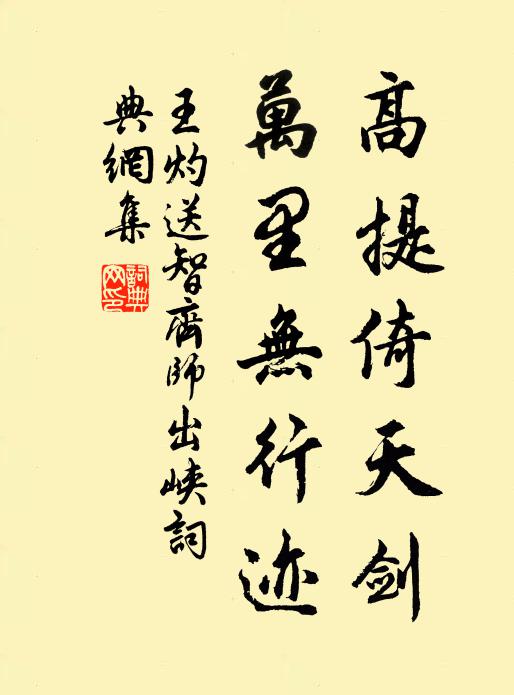 高提倚天劍
萬里無行迹
王灼送智齊師出峽詞
典網集
詞典網印